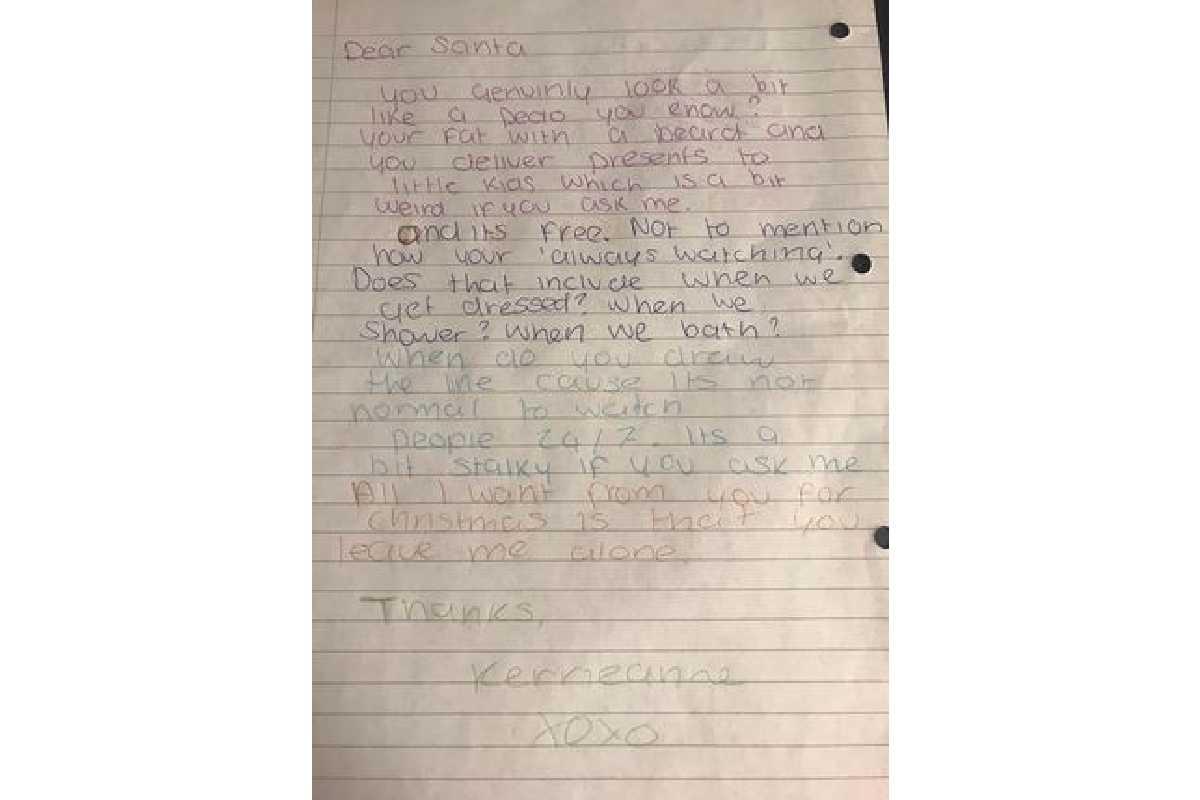 Dear Santa
you genuinly look a bit
like a pedo you know?
your fat with a beard and
you deliver presents to
little kids which is a bit
weird if you ask me.
and its free. Not to mention
how your 'always watching'.
Does that include when we
get dressed? When we
shower? When we bath?
When do you draw
the line cause its not
normal to watch
people 24/7. Its a
bit stalky if you ask me
All I want from you for
christmas is that you
leave me alone.
Thanks,
Kerrieanne
xoxo